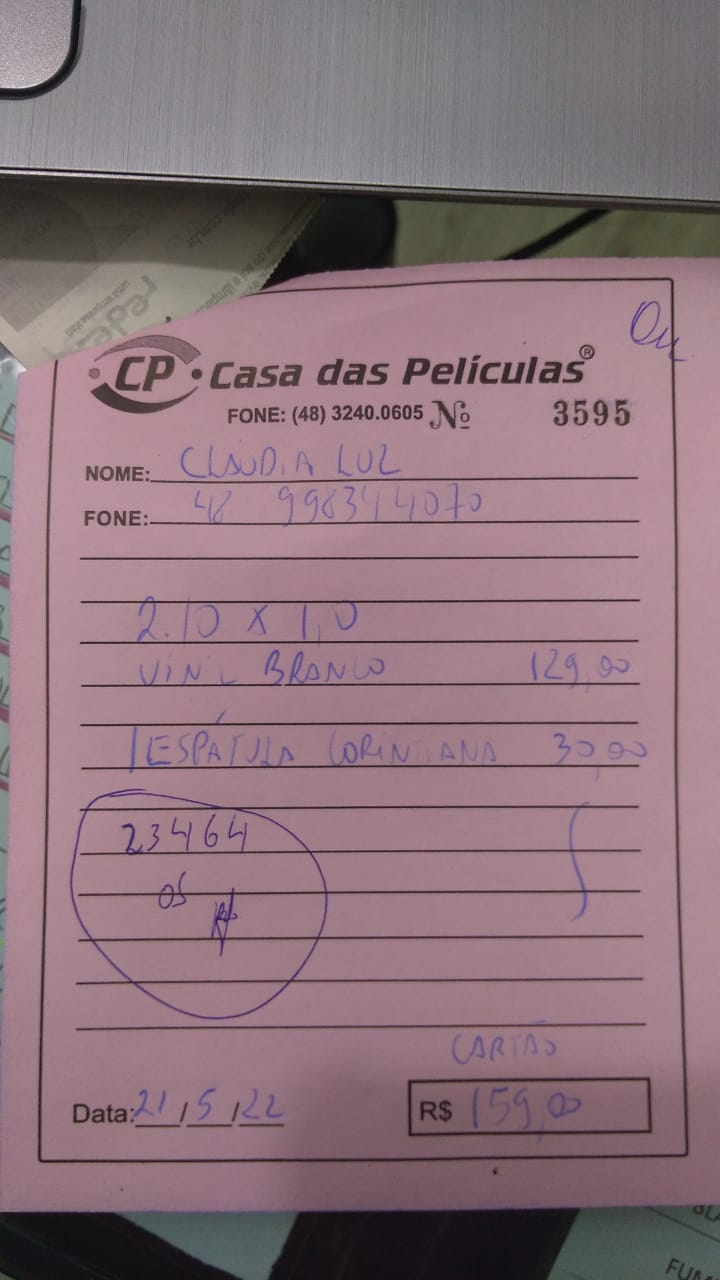 Ou
CP Casa das Películas ®
FONE: (48) 3240.0605 Nº 3595
NOME: CLAUDIA LUZ
FONE: 48 998344070
2.10 X 1,0
VINIL BRANCO 129,00
1 ESPÁTULA CORINTIANA 30,00
23464
OS
CARTÃO
Data: 21/5/22 R$ 159,00